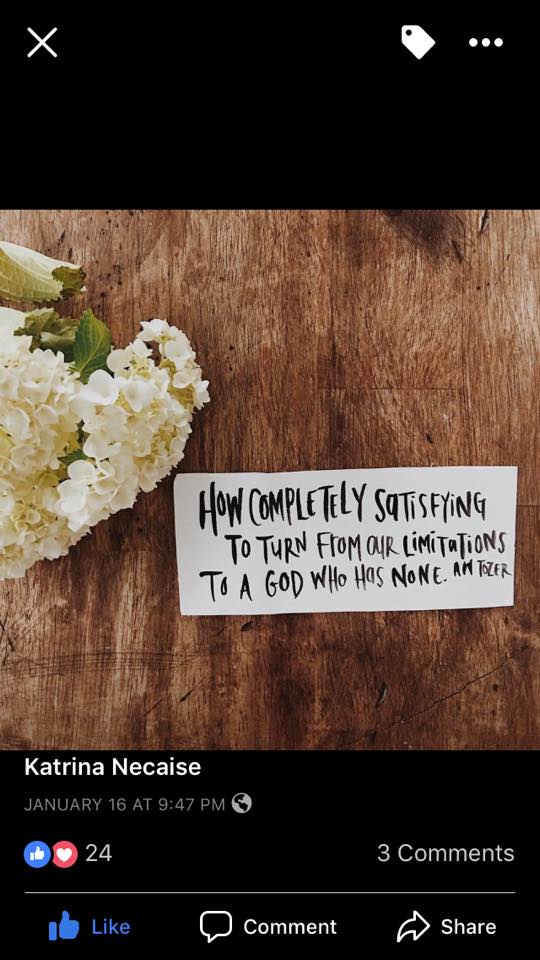 HOW COMPLETELY SATISFYING
TO TURN FROM OUR LIMITATIONS
TO A GOD WHO HAS NONE. AW TOZER
Katrina Necaise
JANUARY 16 AT 9:47 PM
24
3 Comments
Like
Comment
Share